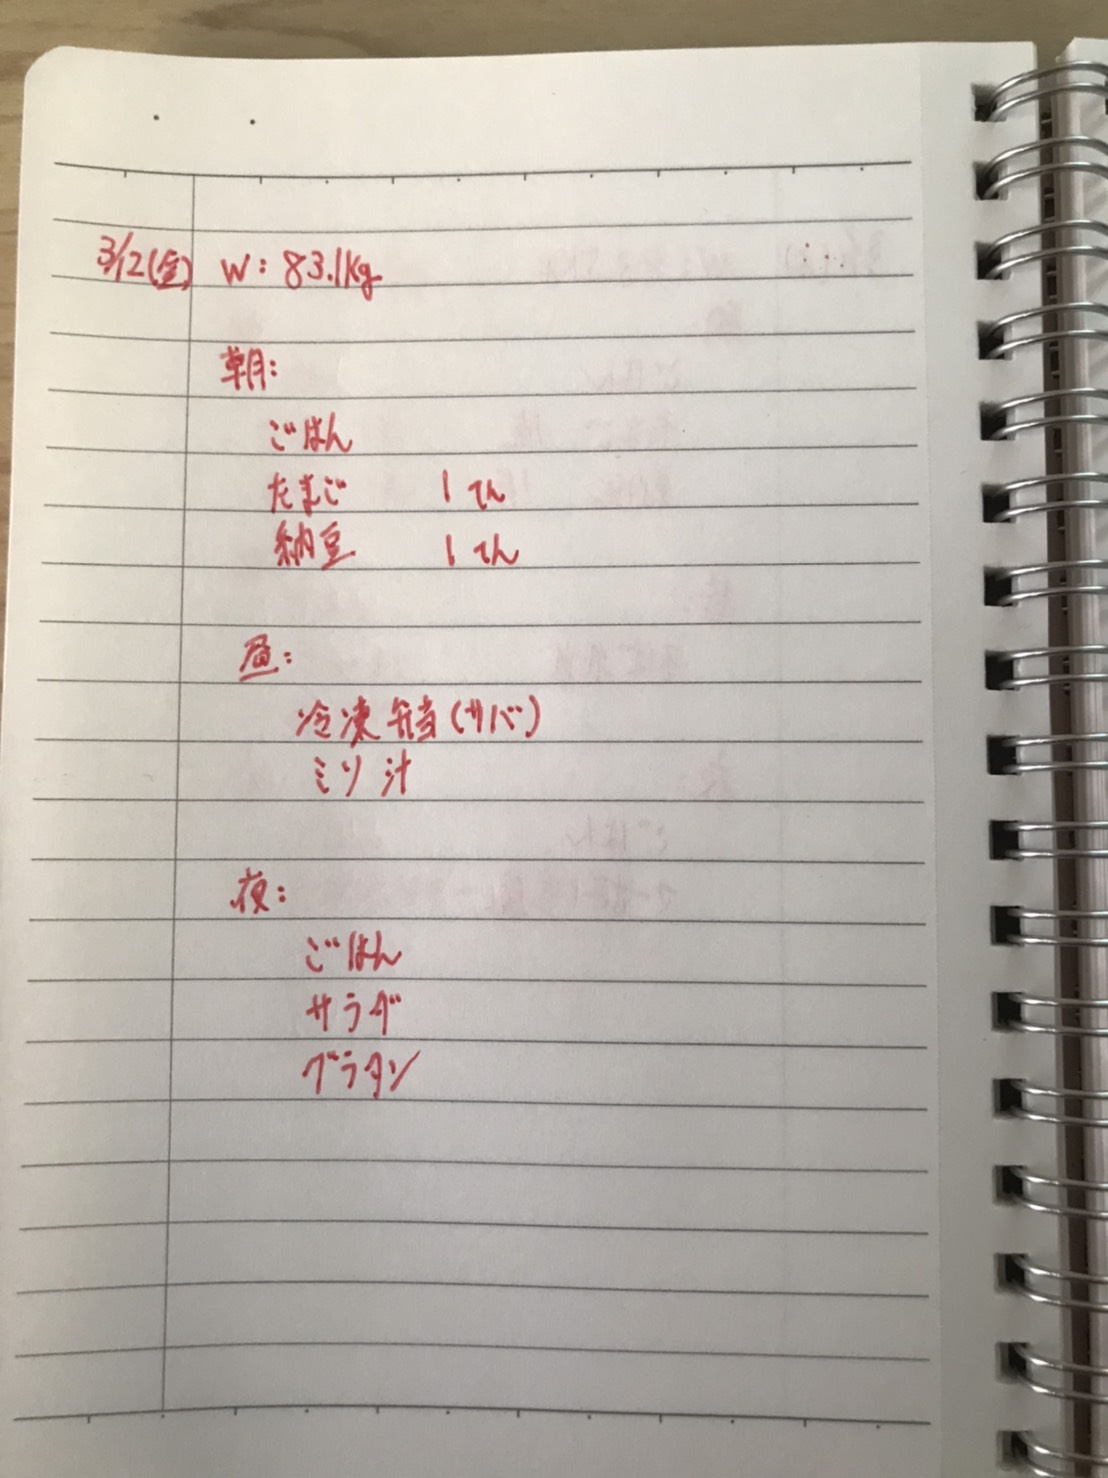 3/12(金) W: 83.1kg
朝:
ごはん
たまご 1 てん
納豆 1 てん
昼:
冷凍弁当(サバ)
ミソ汁
夜:
ごはん
サラダ
グラタン